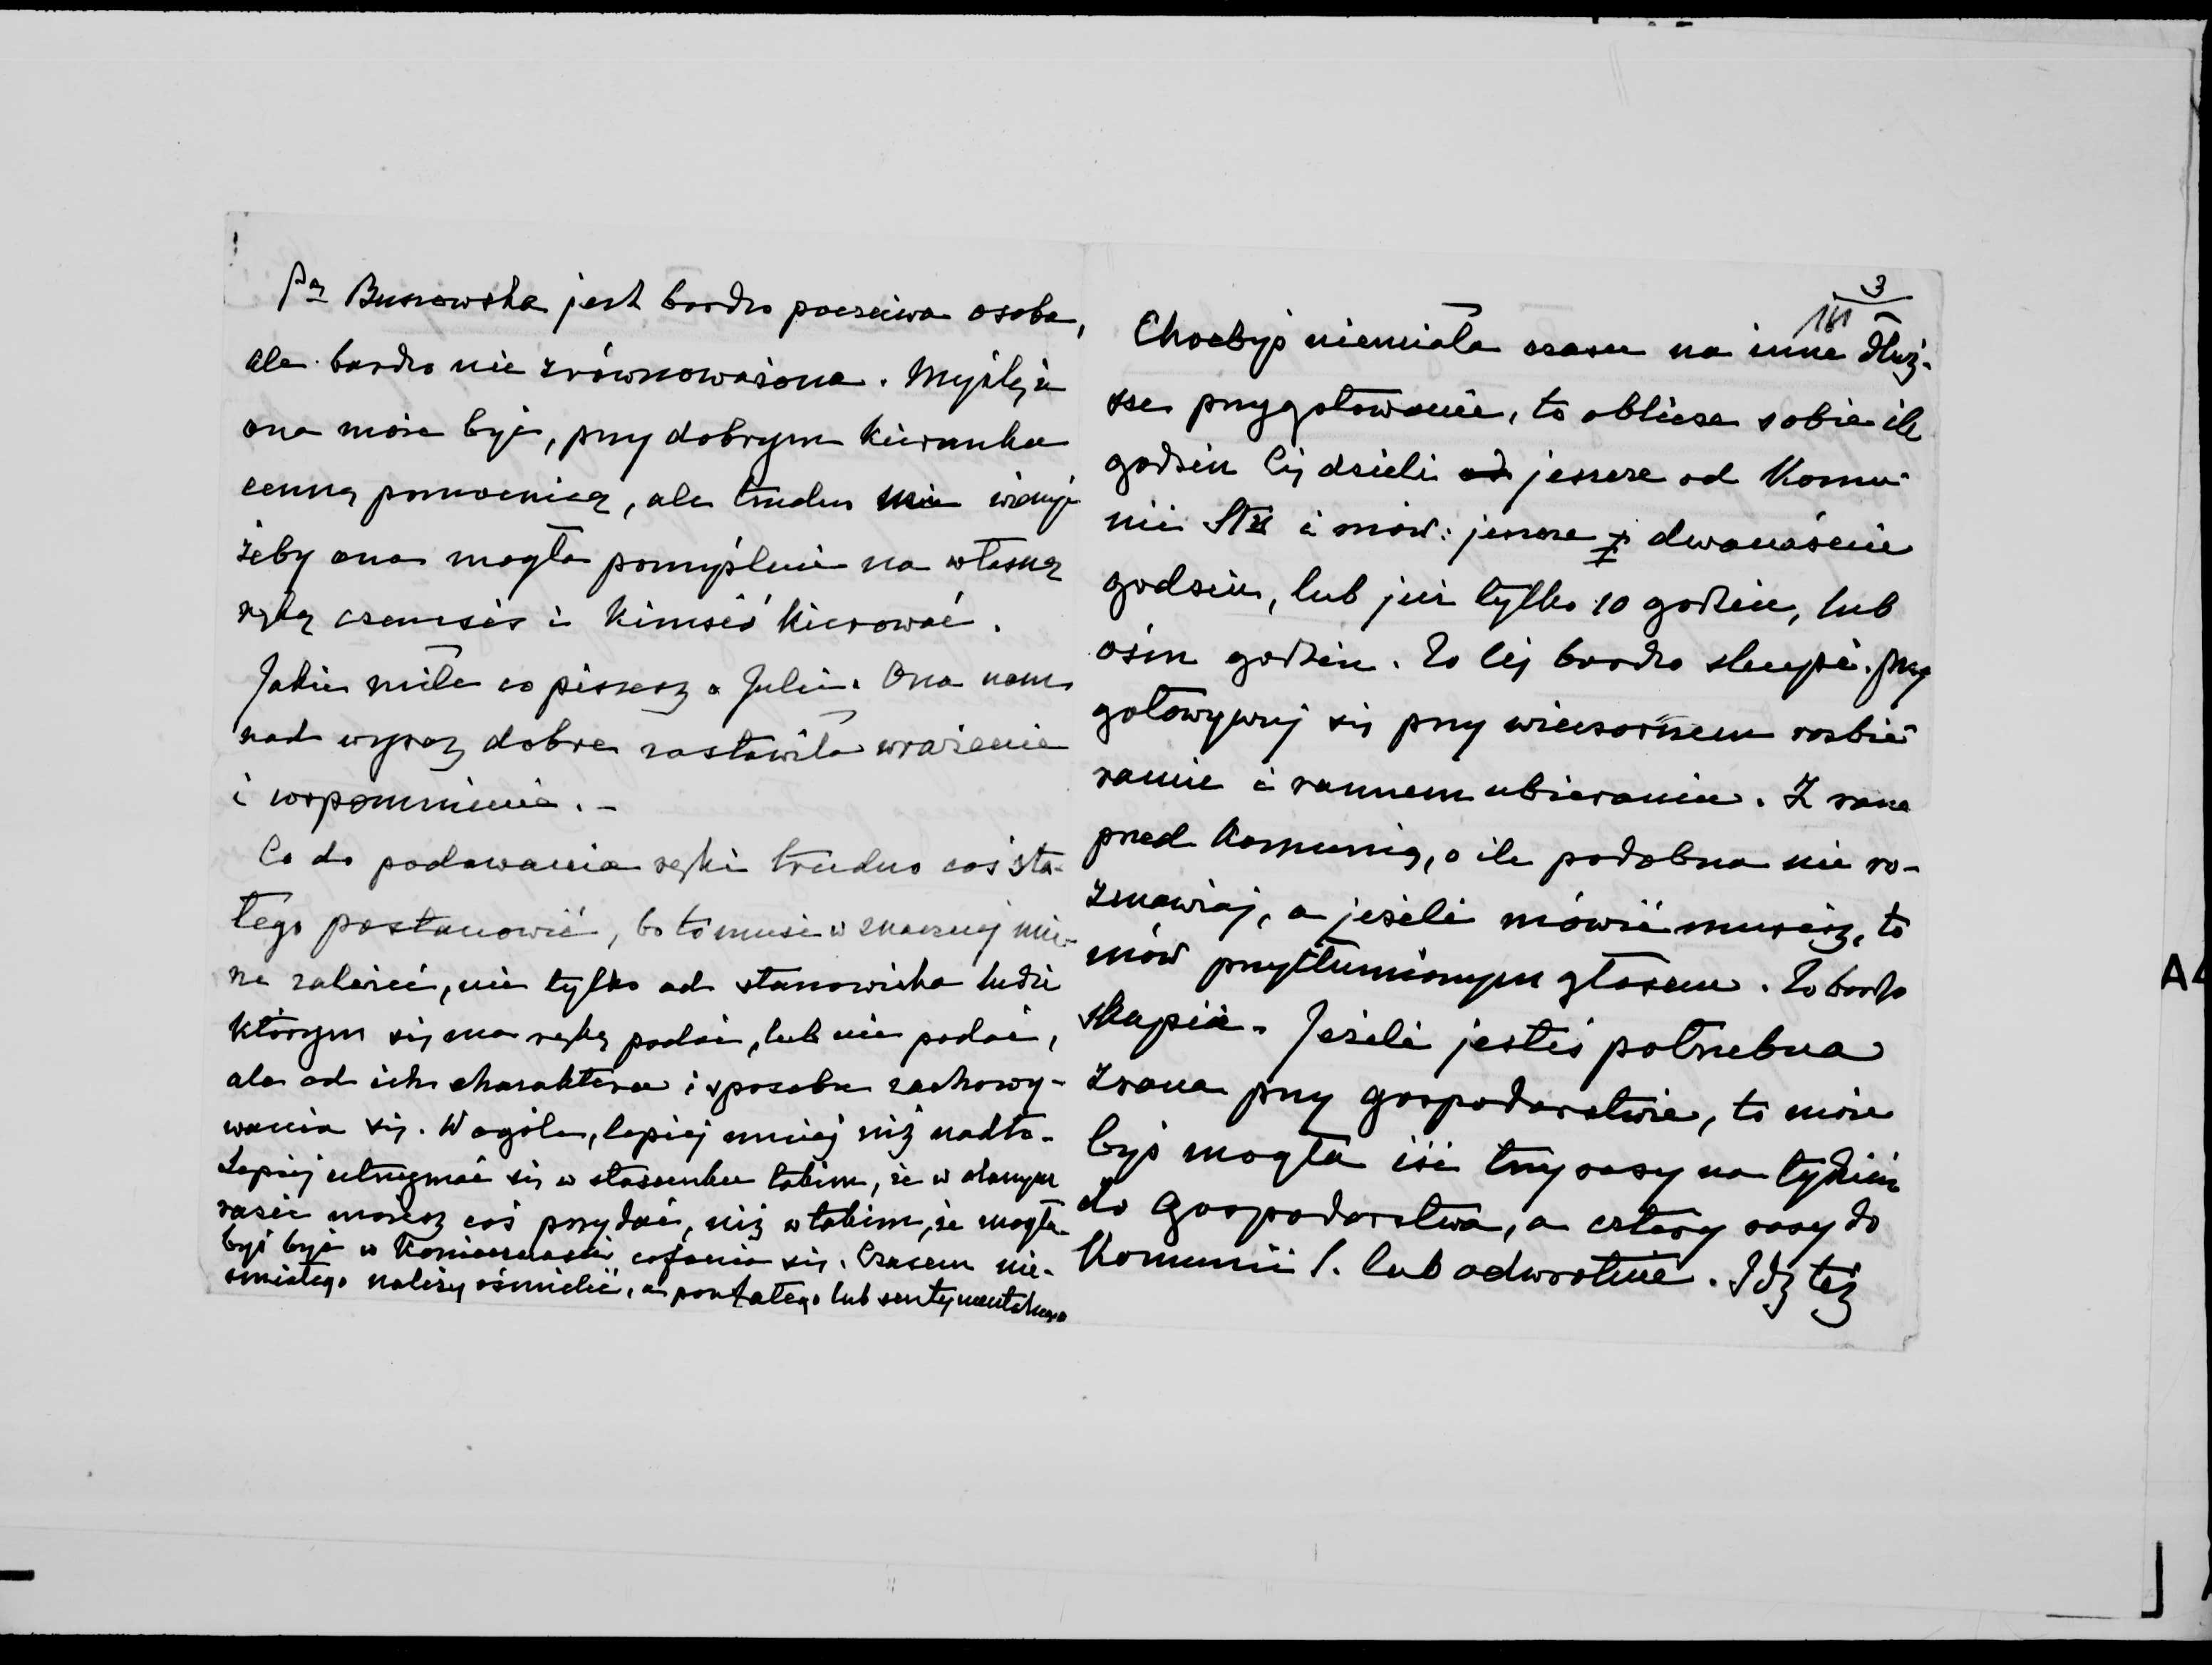 Pa Buszowska jest bardzo poczciwa osoba,
ale bardzo nie zrównoważona. Myślę że
ona może być, przy dobrym kierunku
cenną pomocnicą, ale trudno mie wierzyć
żeby ona mogła pomyślnie na własną
rękę czemsiś i kimsiś kierować.
Jakie miłe co piszesz o Julii. Ona nam
nad wyraz dobre zostawiła wrażenie
i wspomnienie. -
Co do podawania ręki trudno coś sta-
łego postanowić, bo to musi w znacznej mie-
rze zależeć, nie tylko od stanowiska ludzi
którym się ma rękę podać, lub nie podać,
ale od ich charakteru i sposobu zachowy-
wania się. Wogóle, lepiej mniej niż nadto.
Lepiej utrzymać się w stosunku takim, że w danym
razie możesz coś przydać, niż w takim, że mogła-
byś być w konieczności cofania się. Czasem nie-
śmiałego należy ośmielić, a poufałego lub sentymentalnego
3
161
Choćbyś niemiała czasu na inne dłuż-
sze przygotowanie, to oblicz sobie ile
godzin Cię dzieli od jeszcze od Komu-
nii Stej i mów: jeszcze dwanaście
godzin, lub już tylko 10 godzin, lub
ośm godzin. To Cię bardzo skupi. Przy
gotowywuj się przy wieczornem rozbie-
raniu i rannem ubieraniu. Z rana
przed Komunią, o ile podobna nie ro-
zmawiaj, a jeżeli mówić musisz, to
mów przytłumionym głosem. To bardzo
skupia. Jeżeli jesteś potrzebna
zrana przy gospodarstwie, to może
byś mogła iść trzy razy na tydzień
do gospodarstwa, a cztery razy do
Komunii Ś. lub odwrotnie. Idź też